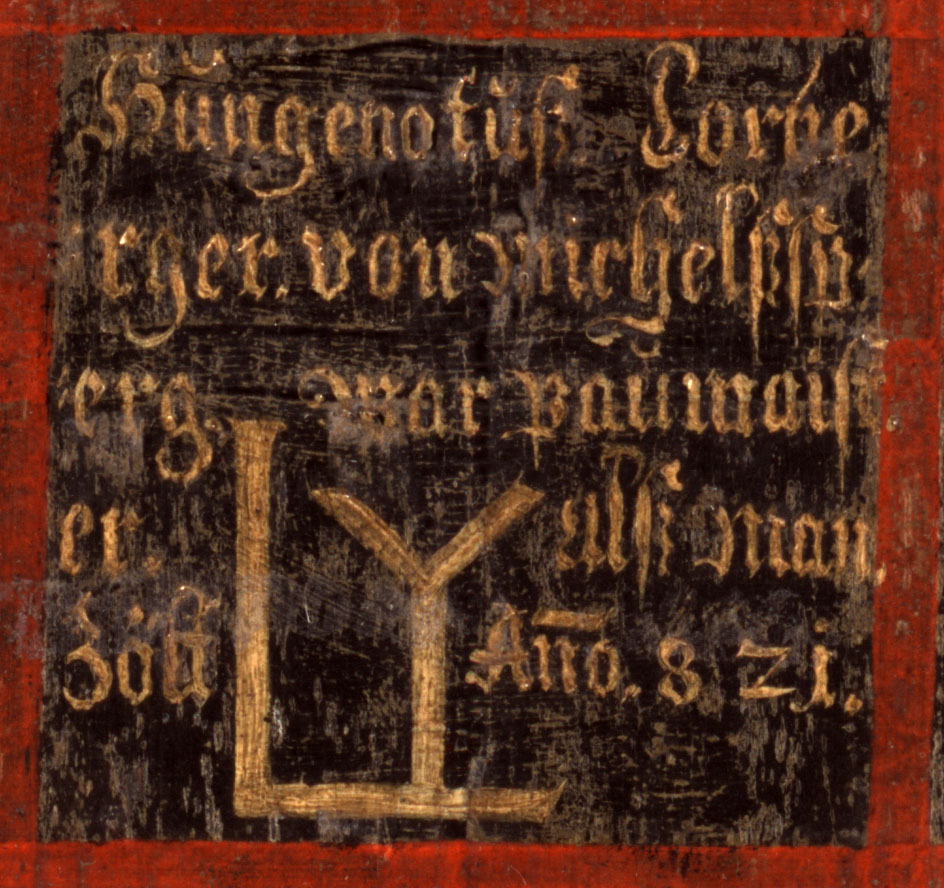 Hüngenotuß. Lorbe
rger. von michelßbü
erg. war paumaist
er. Alß man
zölt Año. 8 2i.